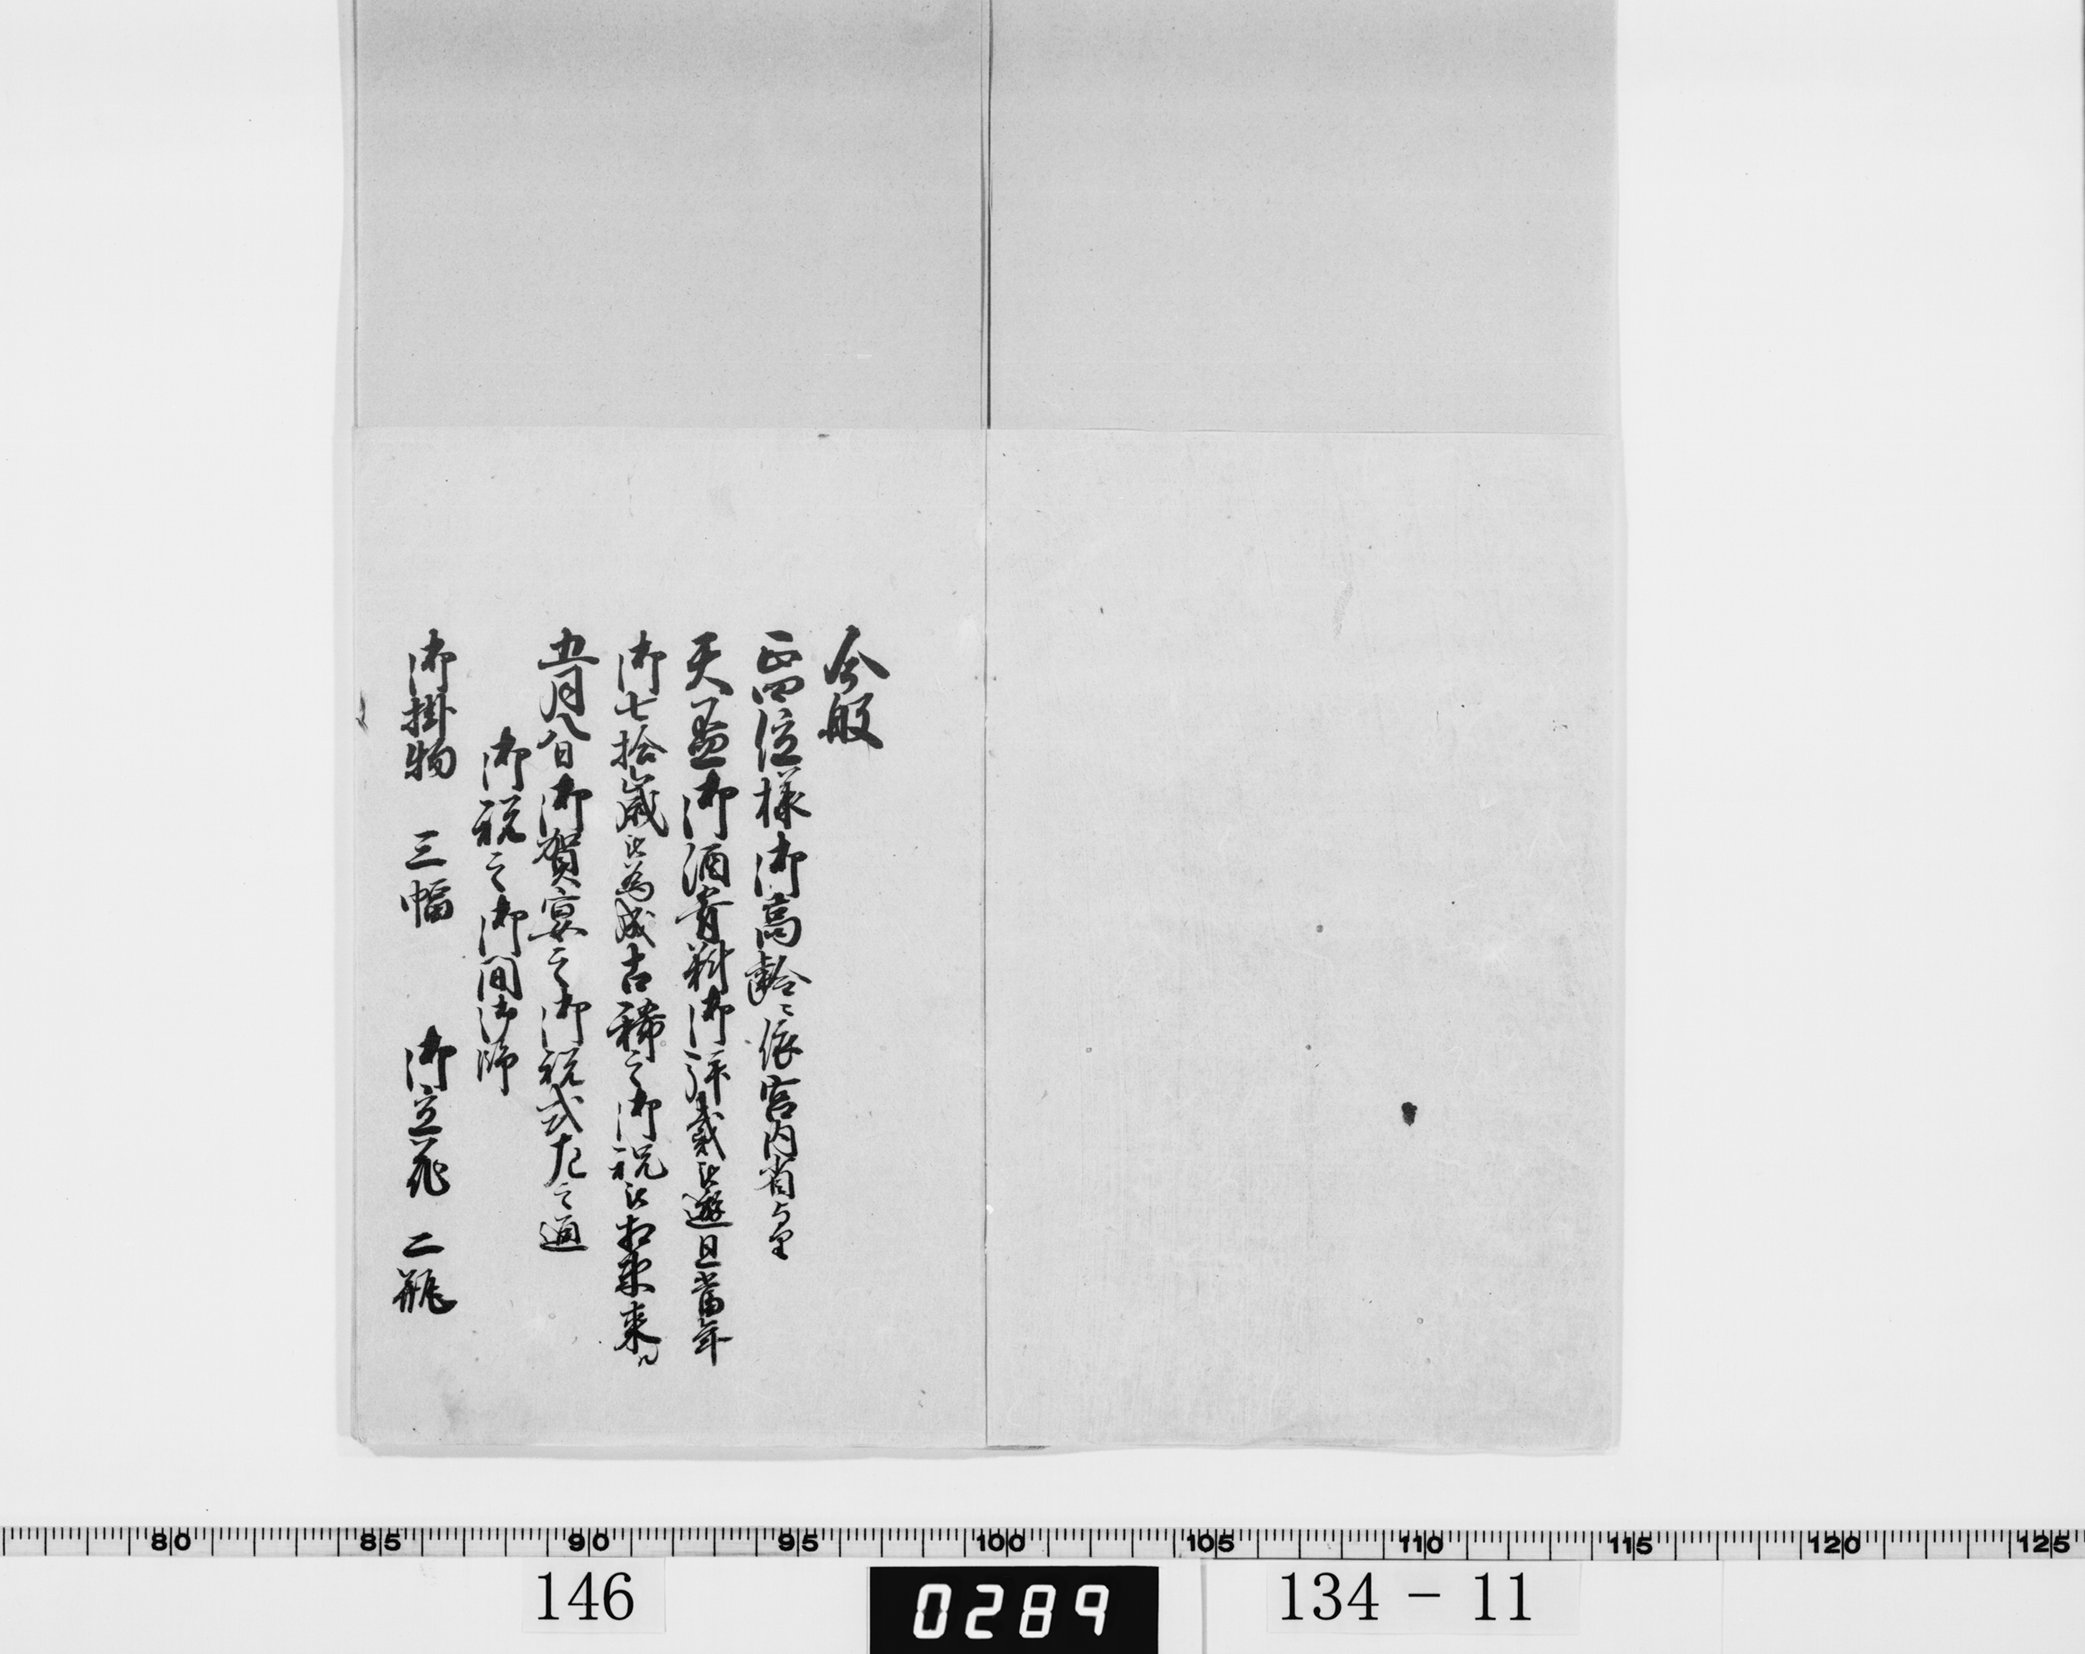 今般
正四位様御高齢ニ依宮内省ゟ
天盃御酒肴料御拝戴被遊且当年
御七拾歳被為成古稀之御祝被相兼来ル
五月八日御賀宴之御祝式左之通
御祝之御間御飾
御掛物 三幅 御立花 二瓶
80 85 90 95 100 105 110 115 120 125
146 0289 134-11